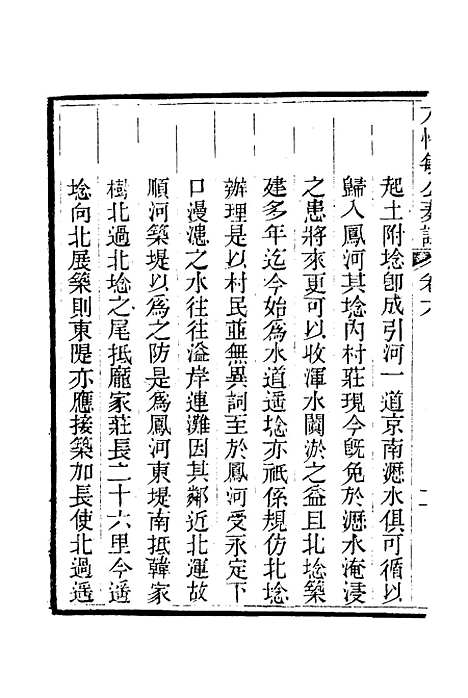 起土附埝卽成引河一道京南瀝水俱可循以
歸入鳳河其埝內村莊現今旣免於瀝水淹浸
之患將來更可以收渾水闐淤之益且北埝築
建多年迄今始為水道遥埝亦祇係規仿北埝
辦理是以村民並無異詞至於鳳河受永定下
口漫溰之水往往溢岸連灘因其鄰近北運故
順河築堤以為之防是為鳳河東堤南抵韓家
樹北過北埝之尾抵龐家莊長二十六里今遥
埝向北展築則東隄亦應接築加長使北過遥